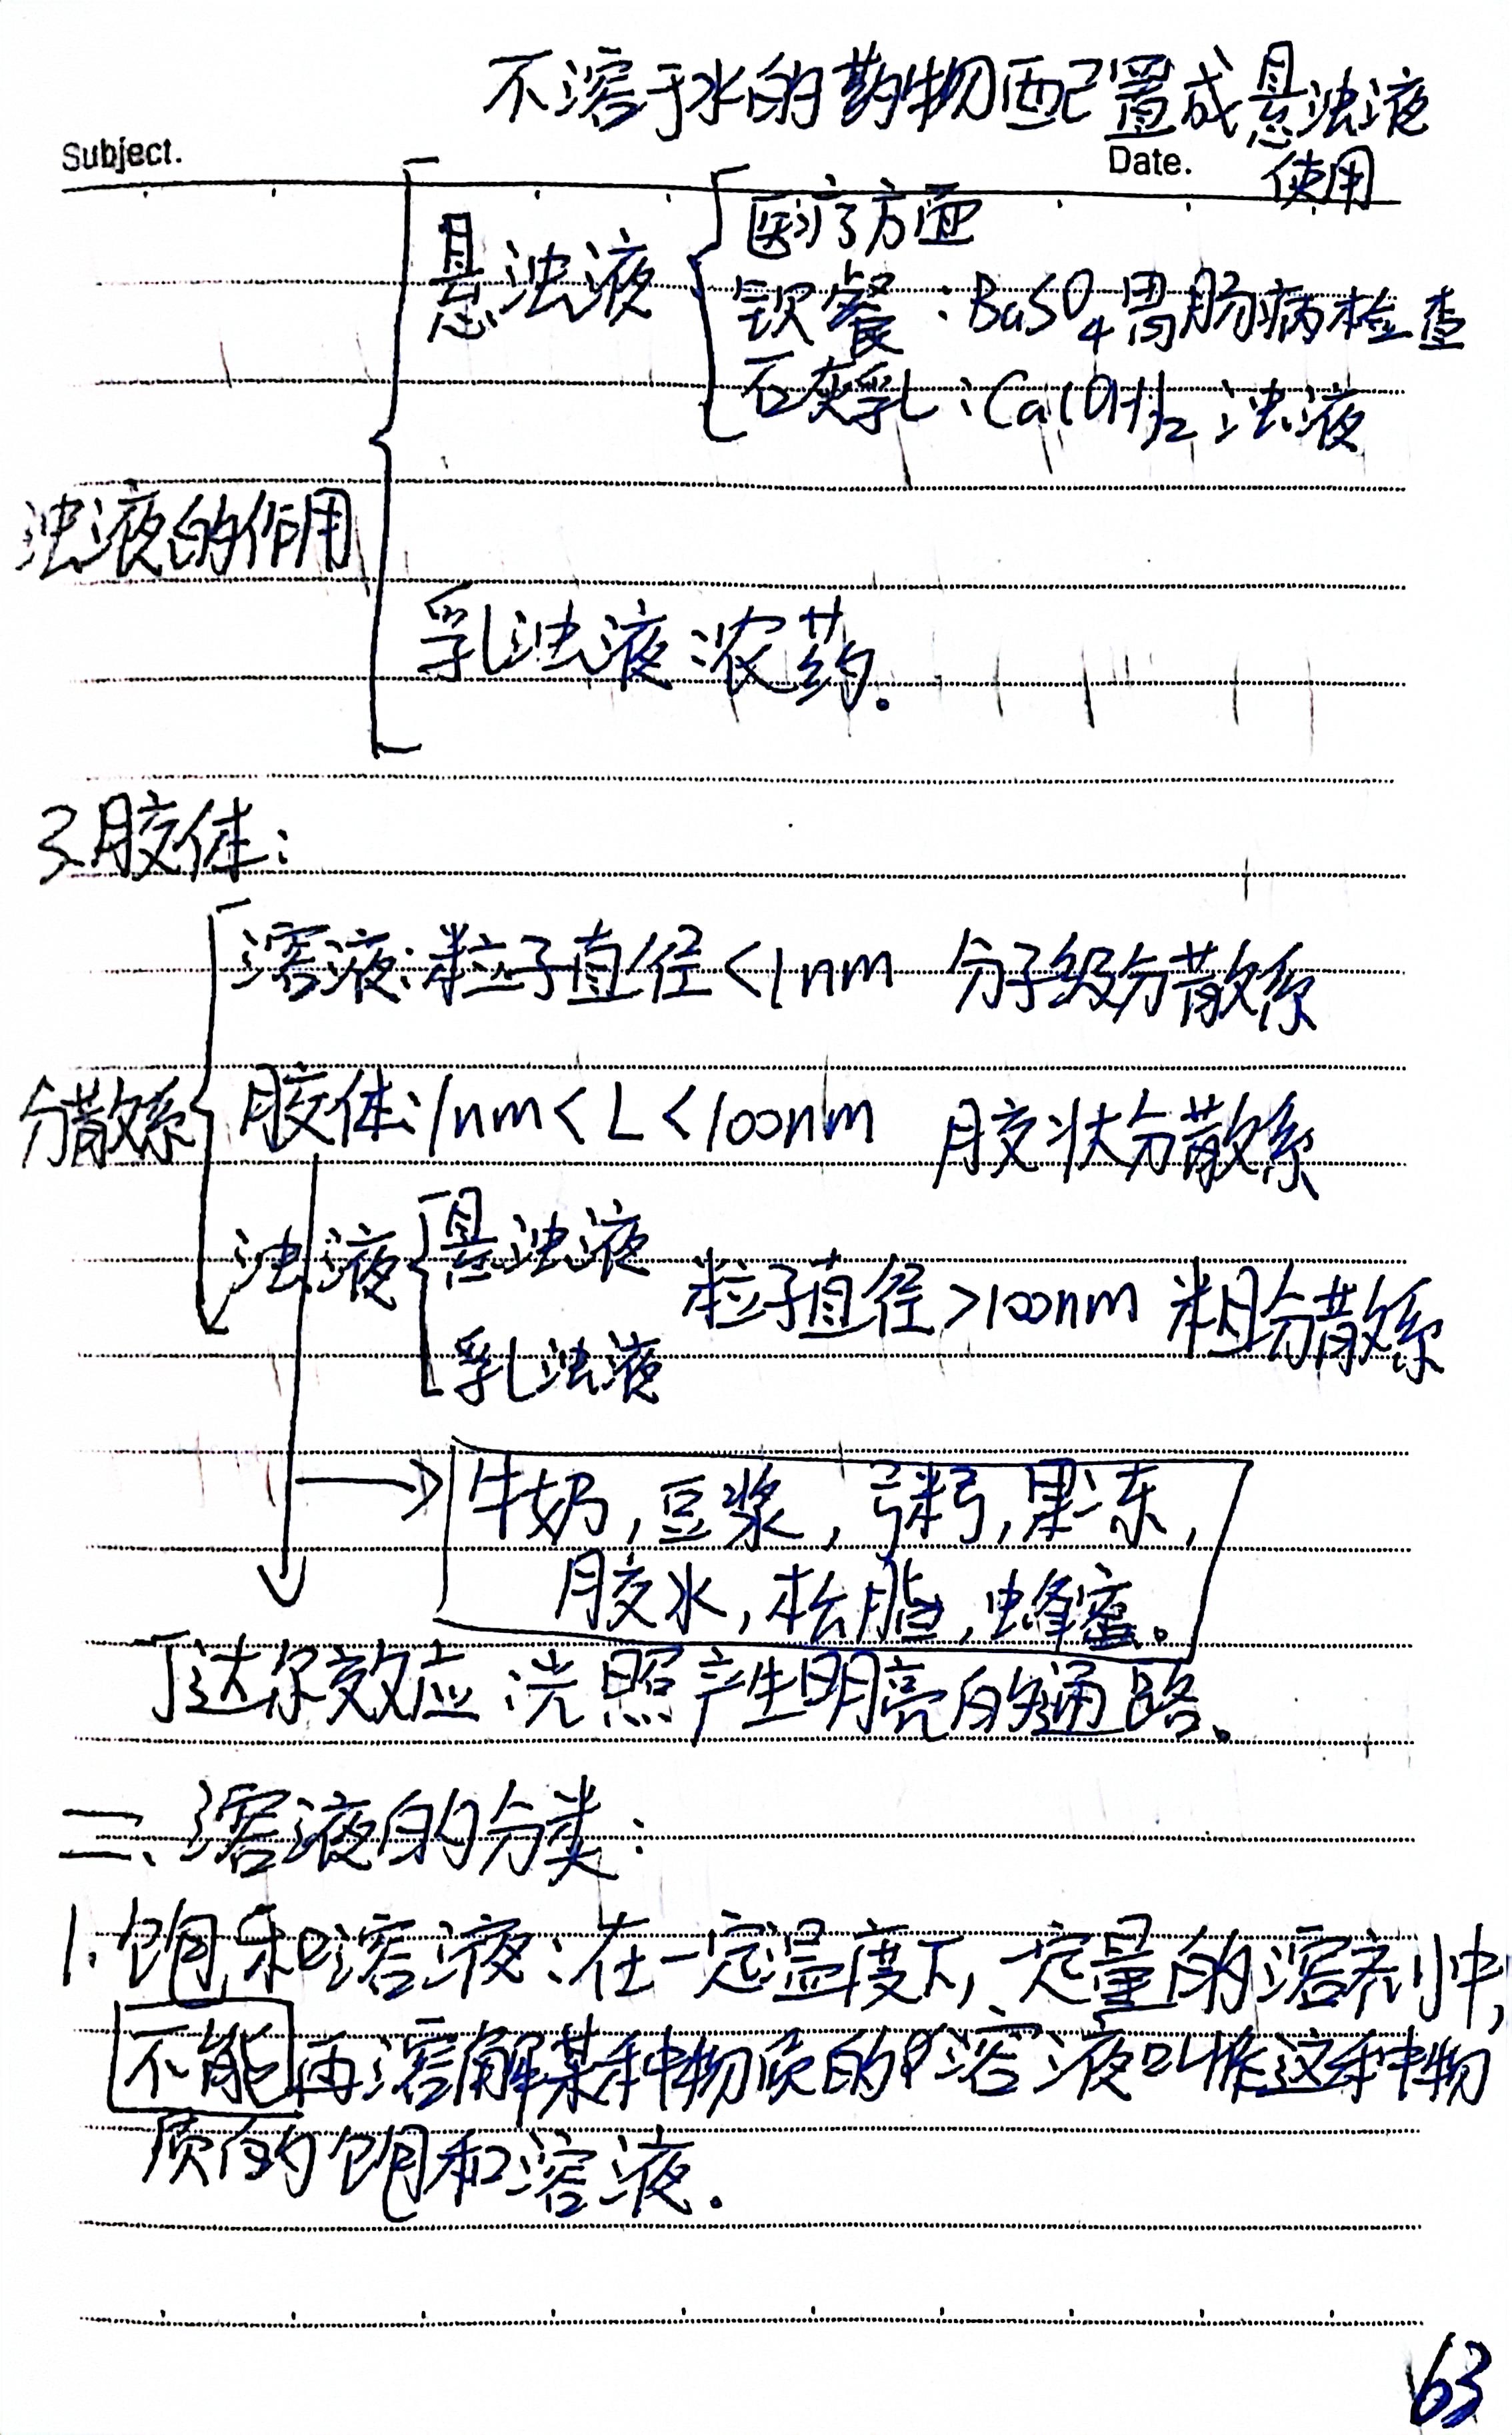 不溶于水的药物配置成悬浊液
Subject.
Date.
使用
悬浊液
医疗方面
钡餐:BaSO4胃肠病检查
石灰乳:Ca(OH)2浊液
浊液的作用
乳浊液:农药。
3.胶体:
溶液:粒子直径<1nm 分子级分散系
分散系
胶体:1nm<L<100nm 胶状分散系
浊液
悬浊液
粒子直径>100nm 粗分散系
乳浊液
牛奶,豆浆,粥,果冻,
胶水,松脂,蜂蜜。
丁达尔效应:光照产生明亮的通路。
二、溶液的分类:
1.饱和溶液:在一定温度下,一定量的溶剂中,
不能再溶解某种物质的溶液叫作这种物
质的饱和溶液.
63